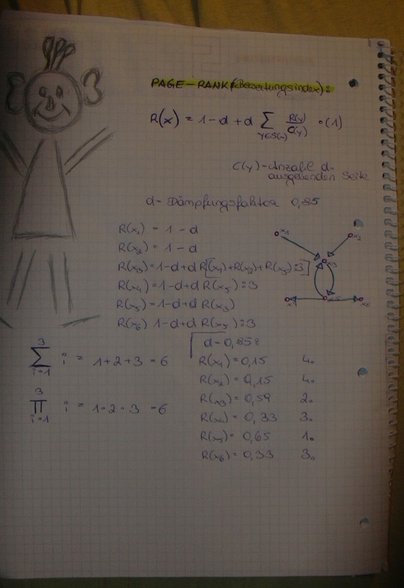 PAGE-RANK (Bewertungsindex):
R(x) = 1-d+d ∑ y∈S(x) R(y)/C(y) (1)
C(y)-Anzahl d.
ausgehenden Seite
d- Dämpfungsfaktor 0,85
R(x₁) = 1-d
R(x₂) = 1-d
R(x₃)=1-d+d[R(x₁)+R(x₂)+R(x₅):3]
R(x₄)=1-d+d R(x₅):3
R(x₅)=1-d+d R(x₃)
R(x₆) 1-d+d R(x₅):3
3 ∑ i=1 i = 1+2+3 = 6
3 ∏ i=1 i = 1·2·3 = 6
R(x₁)=0,15 4.
R(x₂)=0,15 4.
R(x₃)=0,59 2.
R(x₄)=0,33 3.
R(x₅)=0,65 1.
R(x₆)=0,33 3.